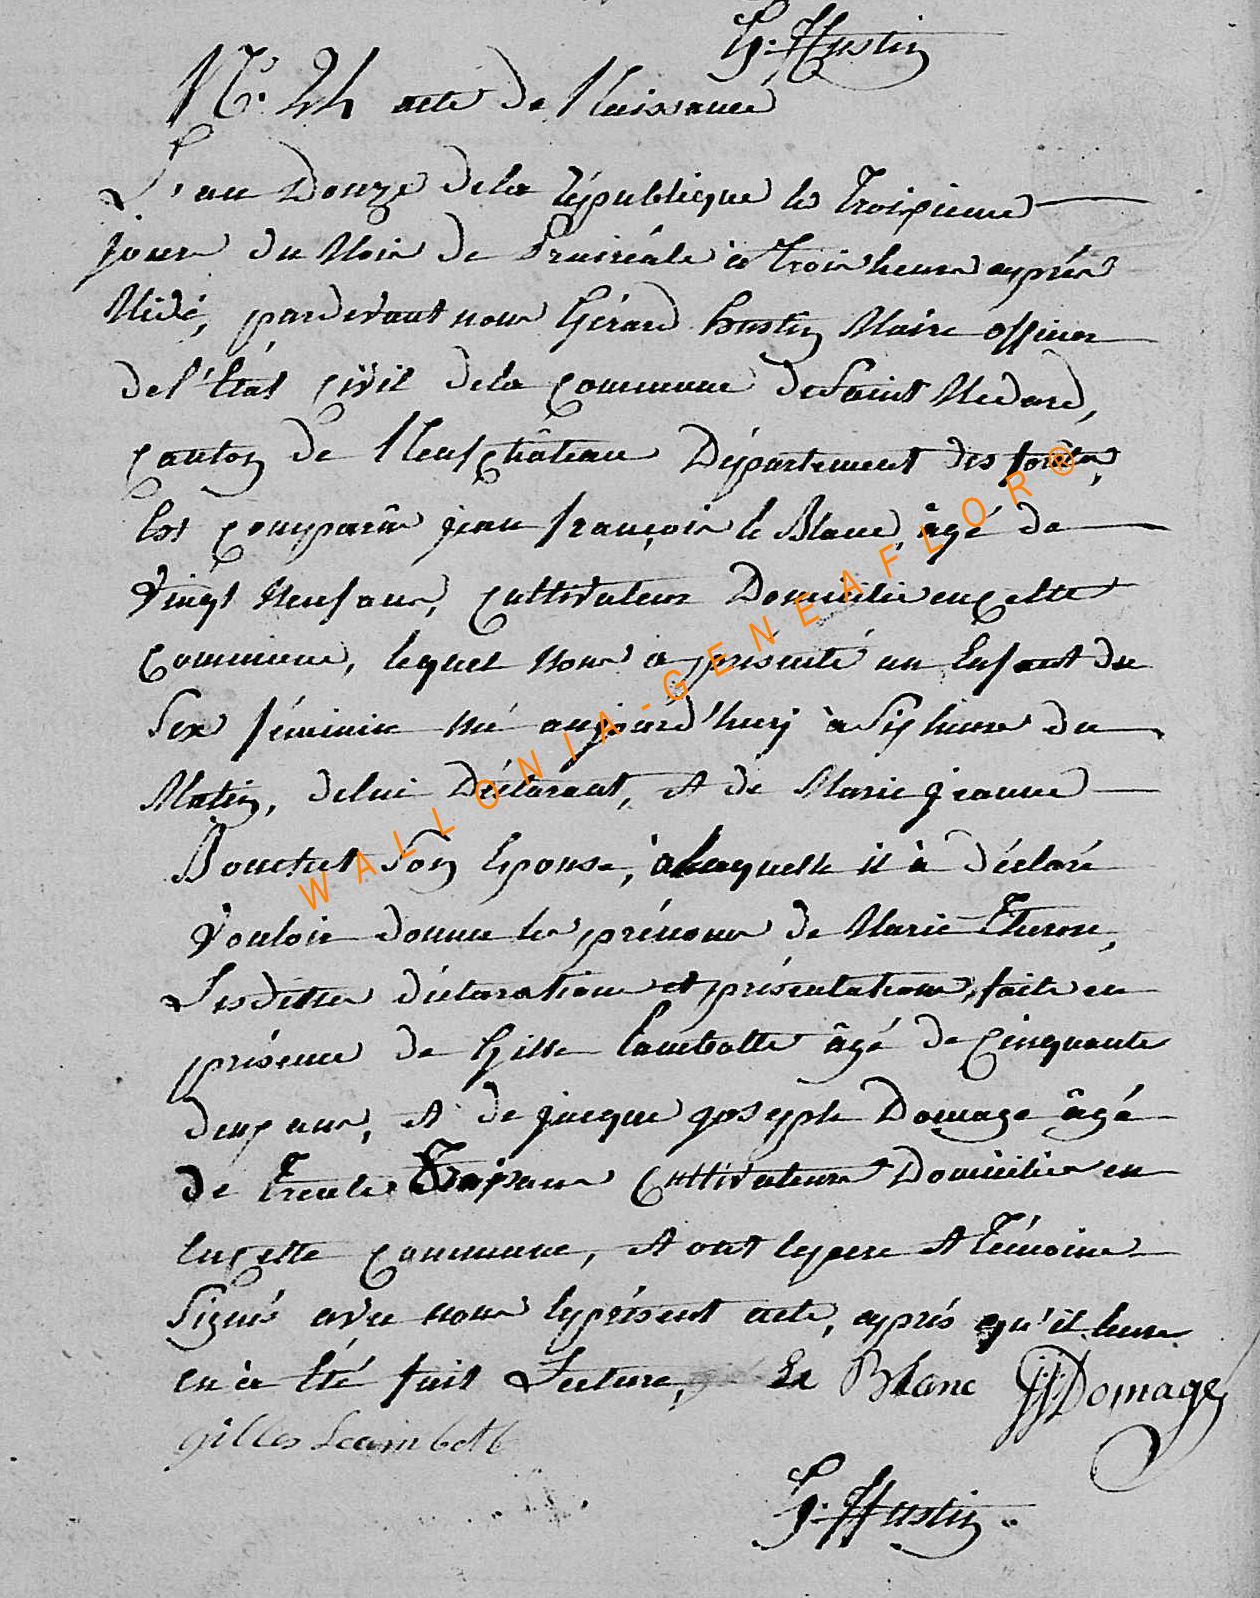 G: Hustin
N.° 24 acte de Naissance
L'an Douze de la république le troixieme
jour du Mois de Prairéale à trois heures après
Midi, pardevant nous Gérard hustin Maire officier
de l'Etat civil de la commune de Saint Médard,
canton de Neufchâteau Département des forêts,
Est comparu jean françois le Blanc, âgé de
Vingt Neuf ans, cultivateur Domicilié en cette
commune, lequel Nous a présenté un Enfant du
Sex féminin Né aujourd'huy à Six heures du
Matin, de lui Déclarant, et de Marie jeanne
Bouchet Son Epouse, à laquelle il à déclaré
Vouloir donner les prénoms de Marie Therese,
Lesdittes déclaration et présentation, faite en
présence de Gille Lambotte âgé de Cinquante
deux ans, et de jacque joseph Domage âgé
de trente trois ans Cultivateurs Domiciliés en
Encette commune, et ont le pere et Témoins
Signés avec nous le présent acte, après qu'il leurs
en à Eté fait Lecture, Le Blanc JJ Domage
gilles Lambott
G: Hustin
WALLONIA-GENEAFLOR®